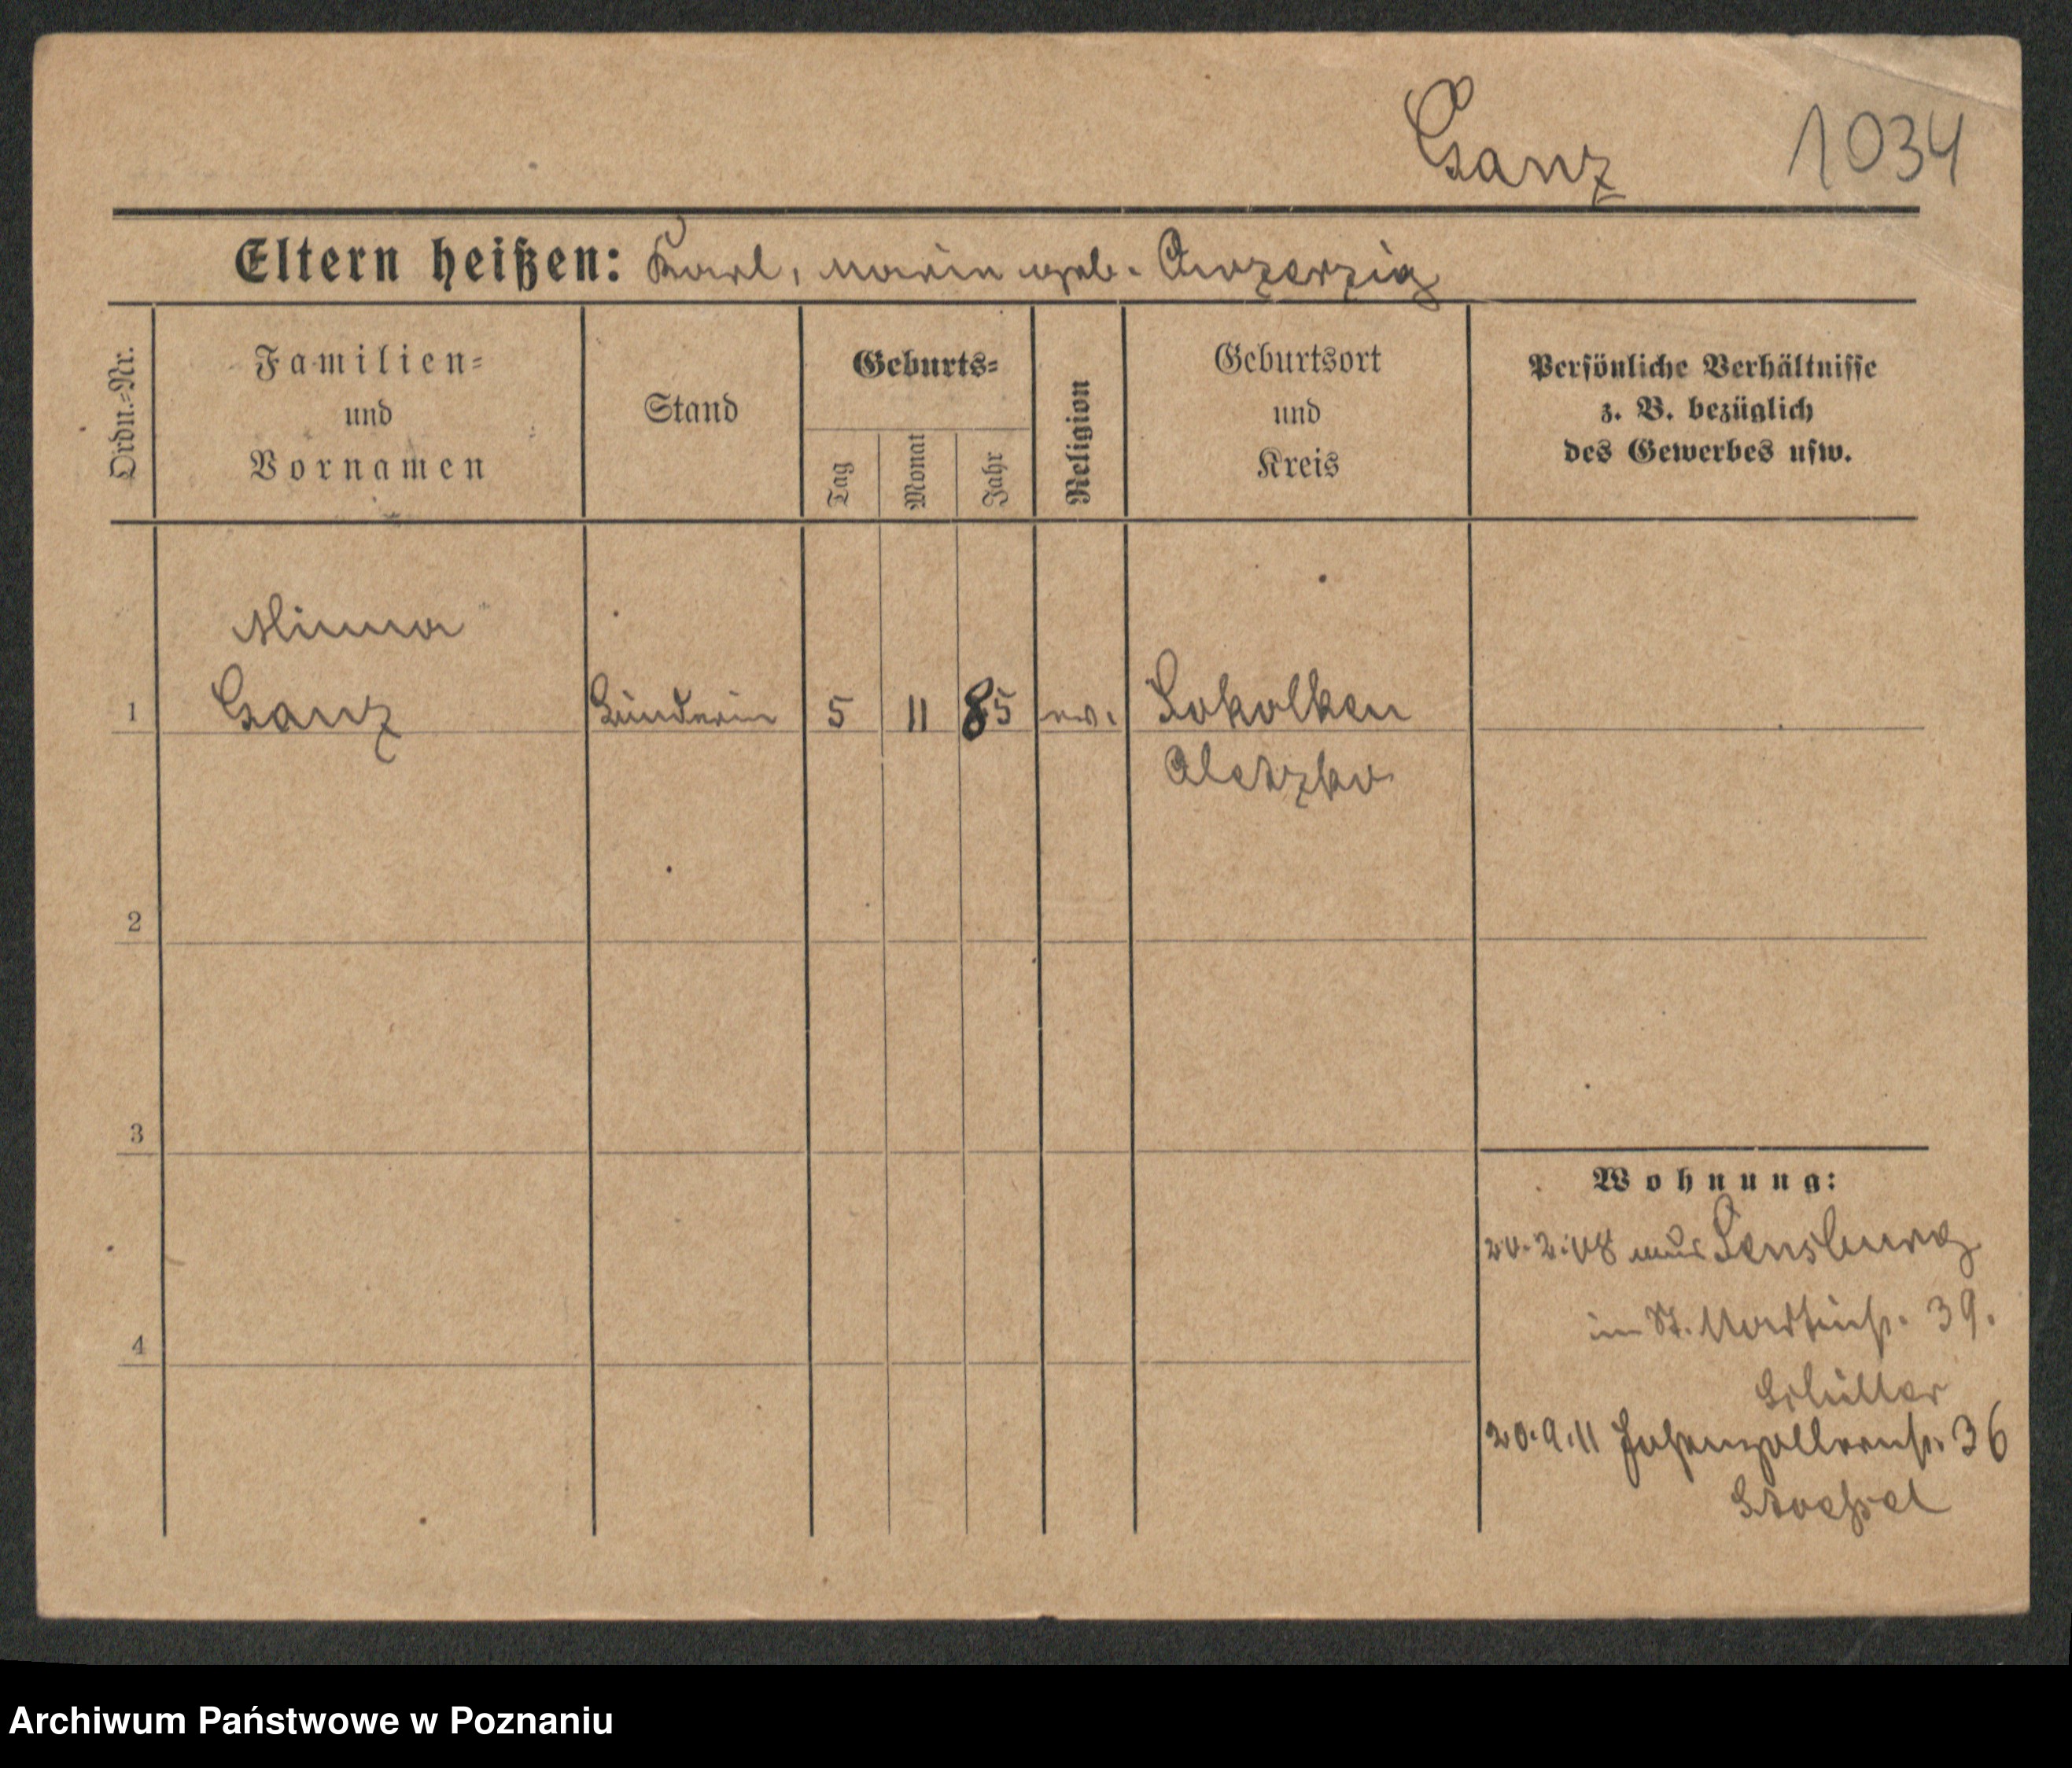 Ganz 1034
Eltern heißen: Karl, Marie geb.
Ordn.-Nr.
Familien-
und
Vornamen
Stand
Geburts-
Tag
Monat
Jahr
Religion
Geburtsort
und
Kreis
Persönliche Verhältnisse
z. B. bezüglich
des Gewerbes usw.
Minna
1 Ganz 5 11 85 ev. Sokolken
Oletzko
2
3
4
Wohnung:
20.2.08 aus Sensburg
im St. 39.
Schüller
20.9.11 Hohenzollernstr. 36
Archiwum Państwowe w Poznaniu